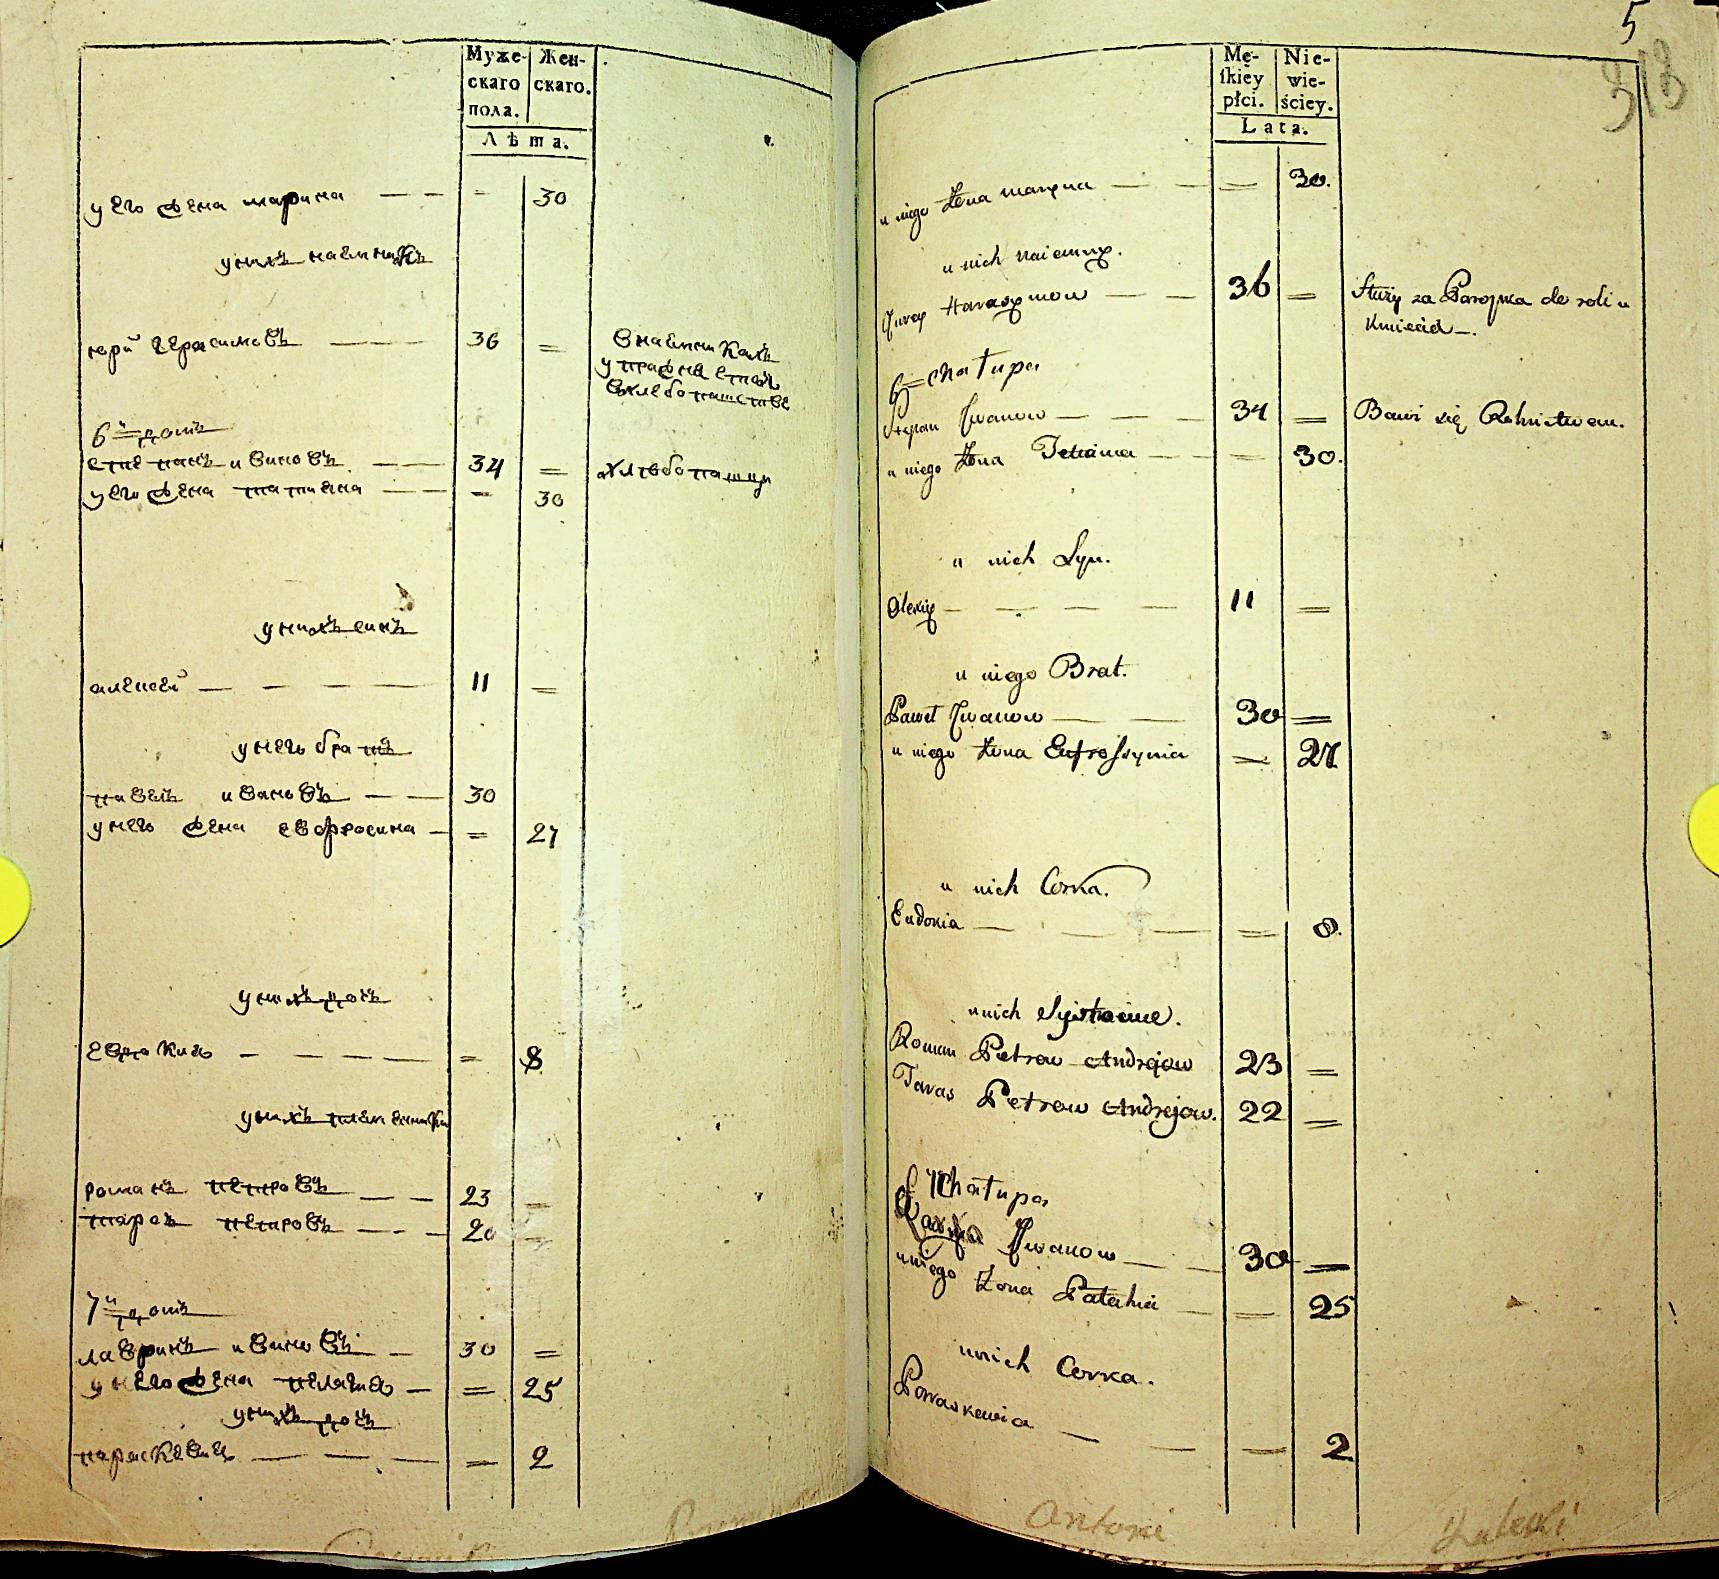 Муже-
скаго
пола.
Жен-
скаго.
Лѣта.
у его жена марина — — - 30
у нихъ наемникъ
юрй герасимовъ — 36 =
в наемникахъ
6й домъ
степанъ ивановъ — 34 = хлебопашцъ
у его жена татиена — - 30
у нихъ синъ
алексей — 11 =
у него братъ
павелъ ивановъ — 30
у него жена евфросина — = 27
у нихъ дочъ
евдокия — = 8
у нихъ племенники
романъ петровъ — 23 =
тарасъ петровъ — 20 =
7й домъ
лавринъ ивановъ — 30 =
у него жена пелагия — = 25
у нихъ дочъ
параскевия — = 2
5
313
Mę-
skiey
płci.
Nie-
wie-
ściey.
Lata.
u niego Żona maryna — = 30.
u nich naiemny.
Jurey Harasymow — 36 = Służy za Parobka do roli u
Kmiecia.
6 Chałupa
Stepan Jwanow — 34 = Bawi się Rolnictwem.
u niego Żona Tetiana — = 30.
u nich Syn.
Olexiy — 11 =
u niego Brat.
Paweł Jwanow — 30 =
u niego Żona Eufrossynia = 27
u nich Corka.
Eudokia — = 8.
u nich Systrzeńce.
Roman Petrow Andrejow 23 =
Taras Petrow Andrejow. 22 =
7 Chałupa
Jwanow — 30 =
u niego Żona Palahia — = 25
u nich Corka.
Paraskewia — = 2.
Antoni Zaleski